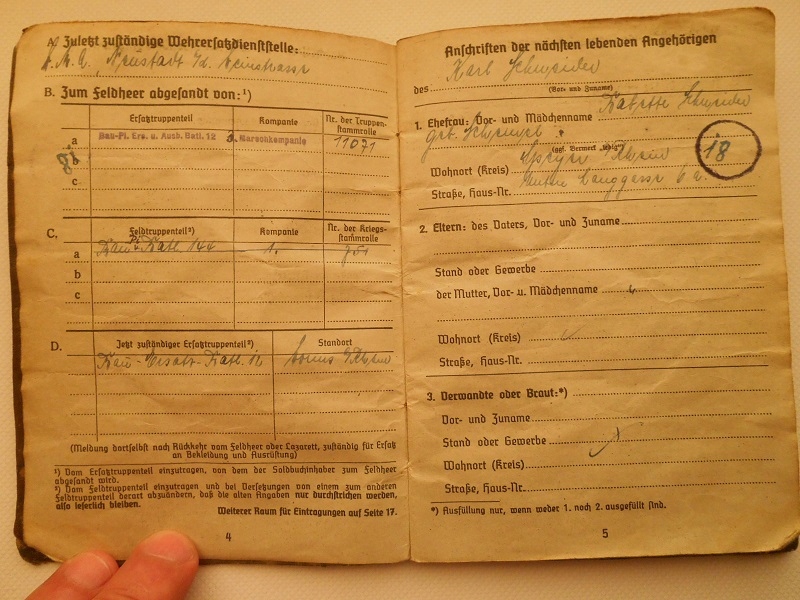 A. Zuletzt zuständige Wehrersatzdienststelle:
W.M.A. Neustadt a/d. Weinstrasse
B. Zum Feldheer abgesandt von:¹)
Ersatztruppenteil Kompanie Nr. der Truppen-stammrolle
a Bau-Pi. Ers. u. Ausb. Batl. 12 3. Marschkompanie 11071
b
c
C. Feldtruppenteil²) Kompanie Nr. der Kriegs-stammrolle
a Bau Pi. Batl. 144 1.
b
c
D. Jetzt zuständiger Ersatztruppenteil²) Standort
Bau-Ersatz-Batl. 12 Worms a/Rhein
(Meldung dortselbst nach Rückkehr vom Feldheer oder Lazarett, zuständig für Ersatz
an Bekleidung und Ausrüstung)
¹) Vom Ersatztruppenteil einzutragen, von dem der Soldbuchinhaber zum Feldheer
abgesandt wird.
²) Vom Feldtruppenteil einzutragen und bei Versetzungen von einem zum anderen
Feldtruppenteil derart abzuändern, daß die alten Angaben nur durchstrichen werden,
also leserlich bleiben.
Weiterer Raum für Eintragungen auf Seite 17.
4
Anschriften der nächsten lebenden Angehörigen
des Karl Schneider
(Vor- und Zuname)
1. Ehefrau: Vor- und Mädchenname Babette Schneider
geb.
(ggf. Vermerk „ledig")
Wohnort (Kreis) Speyer Rhein
18
Straße, Haus-Nr.
2. Eltern: des Vaters, Vor- und Zuname
Stand oder Gewerbe
der Mutter, Vor- u. Mädchenname
Wohnort (Kreis)
Straße, Haus-Nr.
3. Verwandte oder Braut:*)
Vor- und Zuname
Stand oder Gewerbe
Wohnort (Kreis)
Straße, Haus-Nr.
*) Ausfüllung nur, wenn weder 1. noch 2. ausgefüllt sind.
5